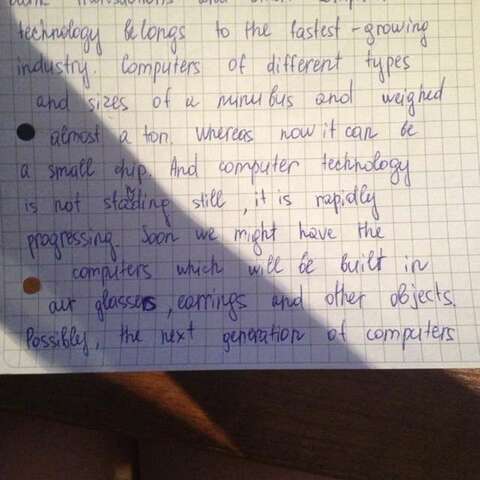 bank transactions and other
technology belongs to the fastest-growing
industry. Computers of different types
and sizes of a minubus and weighed
almost a ton. Whereas now it can be
a small chip. And computer technology
is not standing still, it is rapidly
progressing. Soon we might have the
computers which will be built in
our glasses, earrings and other objects.
Possibly, the next generation of computers